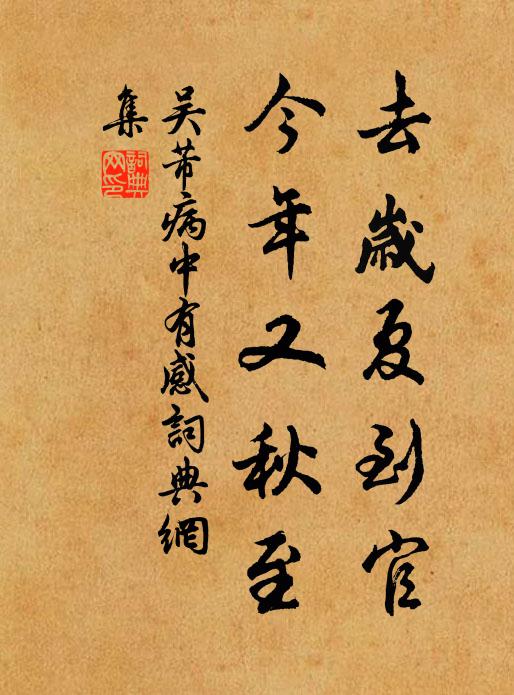 去歲夏到官
今年又秋至
吴芾病中有感詞典網
集
詞典
网印